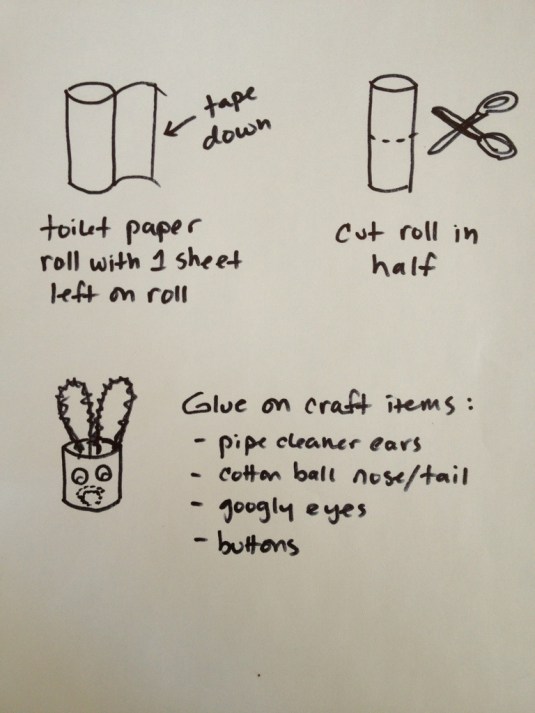 tape
down
toilet paper
roll with 1 sheet
left on roll
Cut roll in
half
Glue on craft items:
- pipe cleaner ears
- cotton ball nose/tail
- googly eyes
- buttons